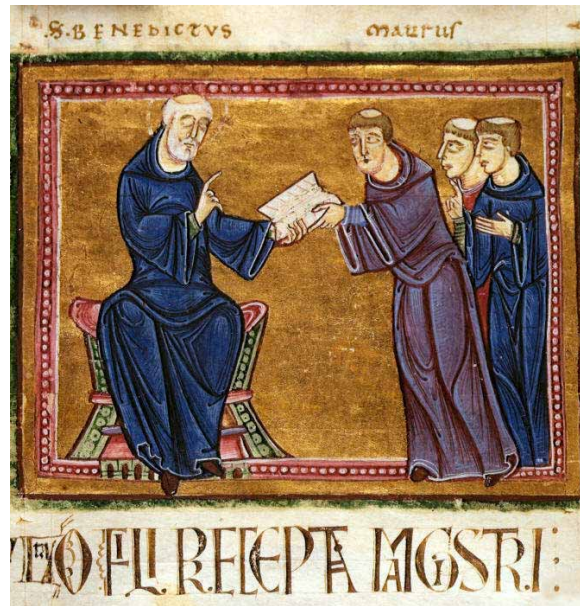 .S. BENEDICTVS MAURUS
FILI RECEPTA MAGISTRI: